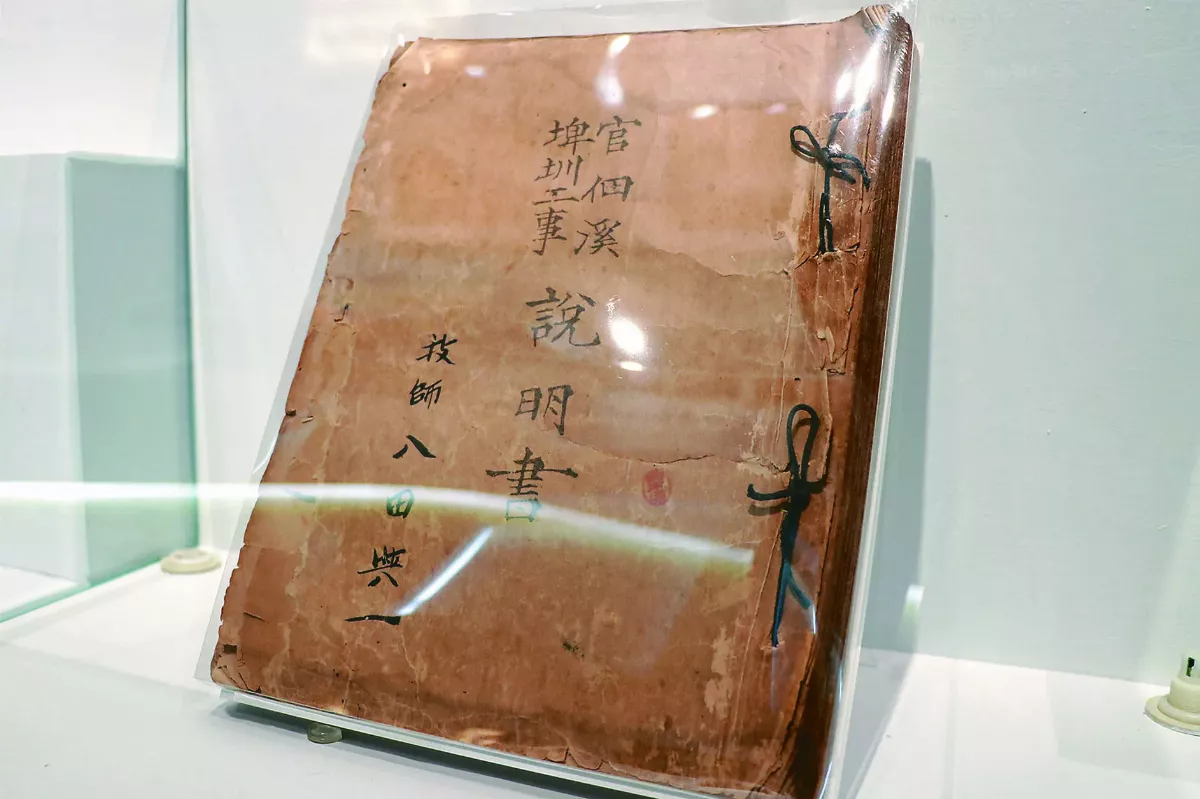 官佃溪
埤圳工事
說明書
技師 八田與一